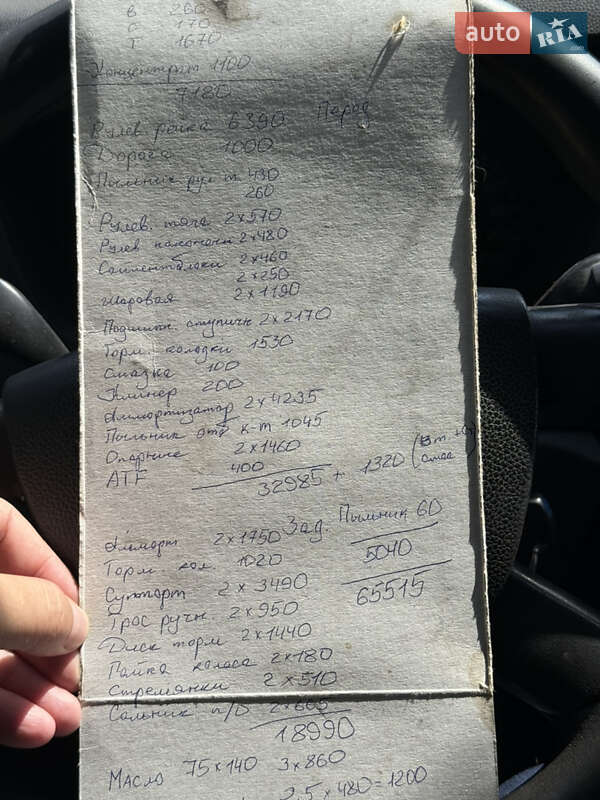 auto RIA.com
В 260
С 170
Т 1670
Концентрат 1100
7180
Рулев. рейка 6390 Перед
Дорога 1000
Пыльник рул. т. 430
260
Рулев. тяга 2х570
Рулев наконечн 2х480
Сайлентблоки 2х460
2х250
Шаровая 2х1190
Подшипн. ступичн 2х2170
Торм. колодки 1530
Смазка 100
Клинер 200
Аммортизатор 2х4235
Пыльник отб к-т 1045
Опорные 2х1460
ATF 400
32985 + 1320
Зад. Пыльник 60
Амморт 2х1750
Торм. кол. 1020 5040
Суппорт 2х3490 65515
Трос ручн. 2х950
Диск торм 2х1440
Гайка колеса 2х180
Стремянки 2х510
Сальник п/о 2х605
18990
Масло 75х140 3х860
2,5х480=1200